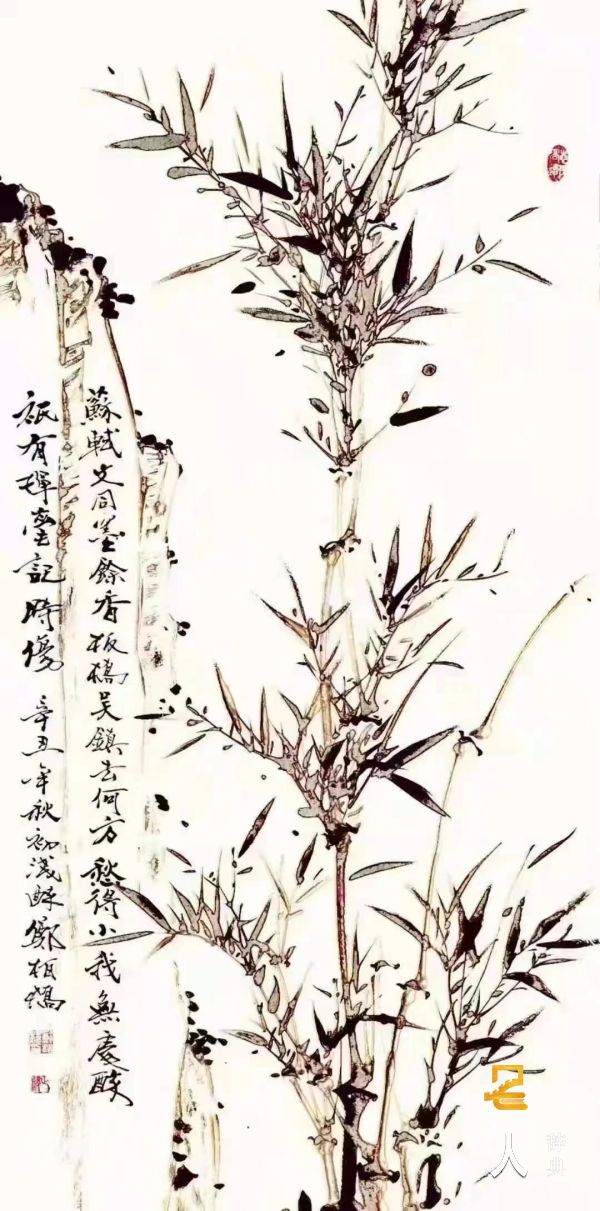 蘇軾文同墨餘香板橋吴鎮去何方愁得小我無處醉
祇有揮毫記時傷 辛丑年秋初淺酔鄭板橋
人
辞典